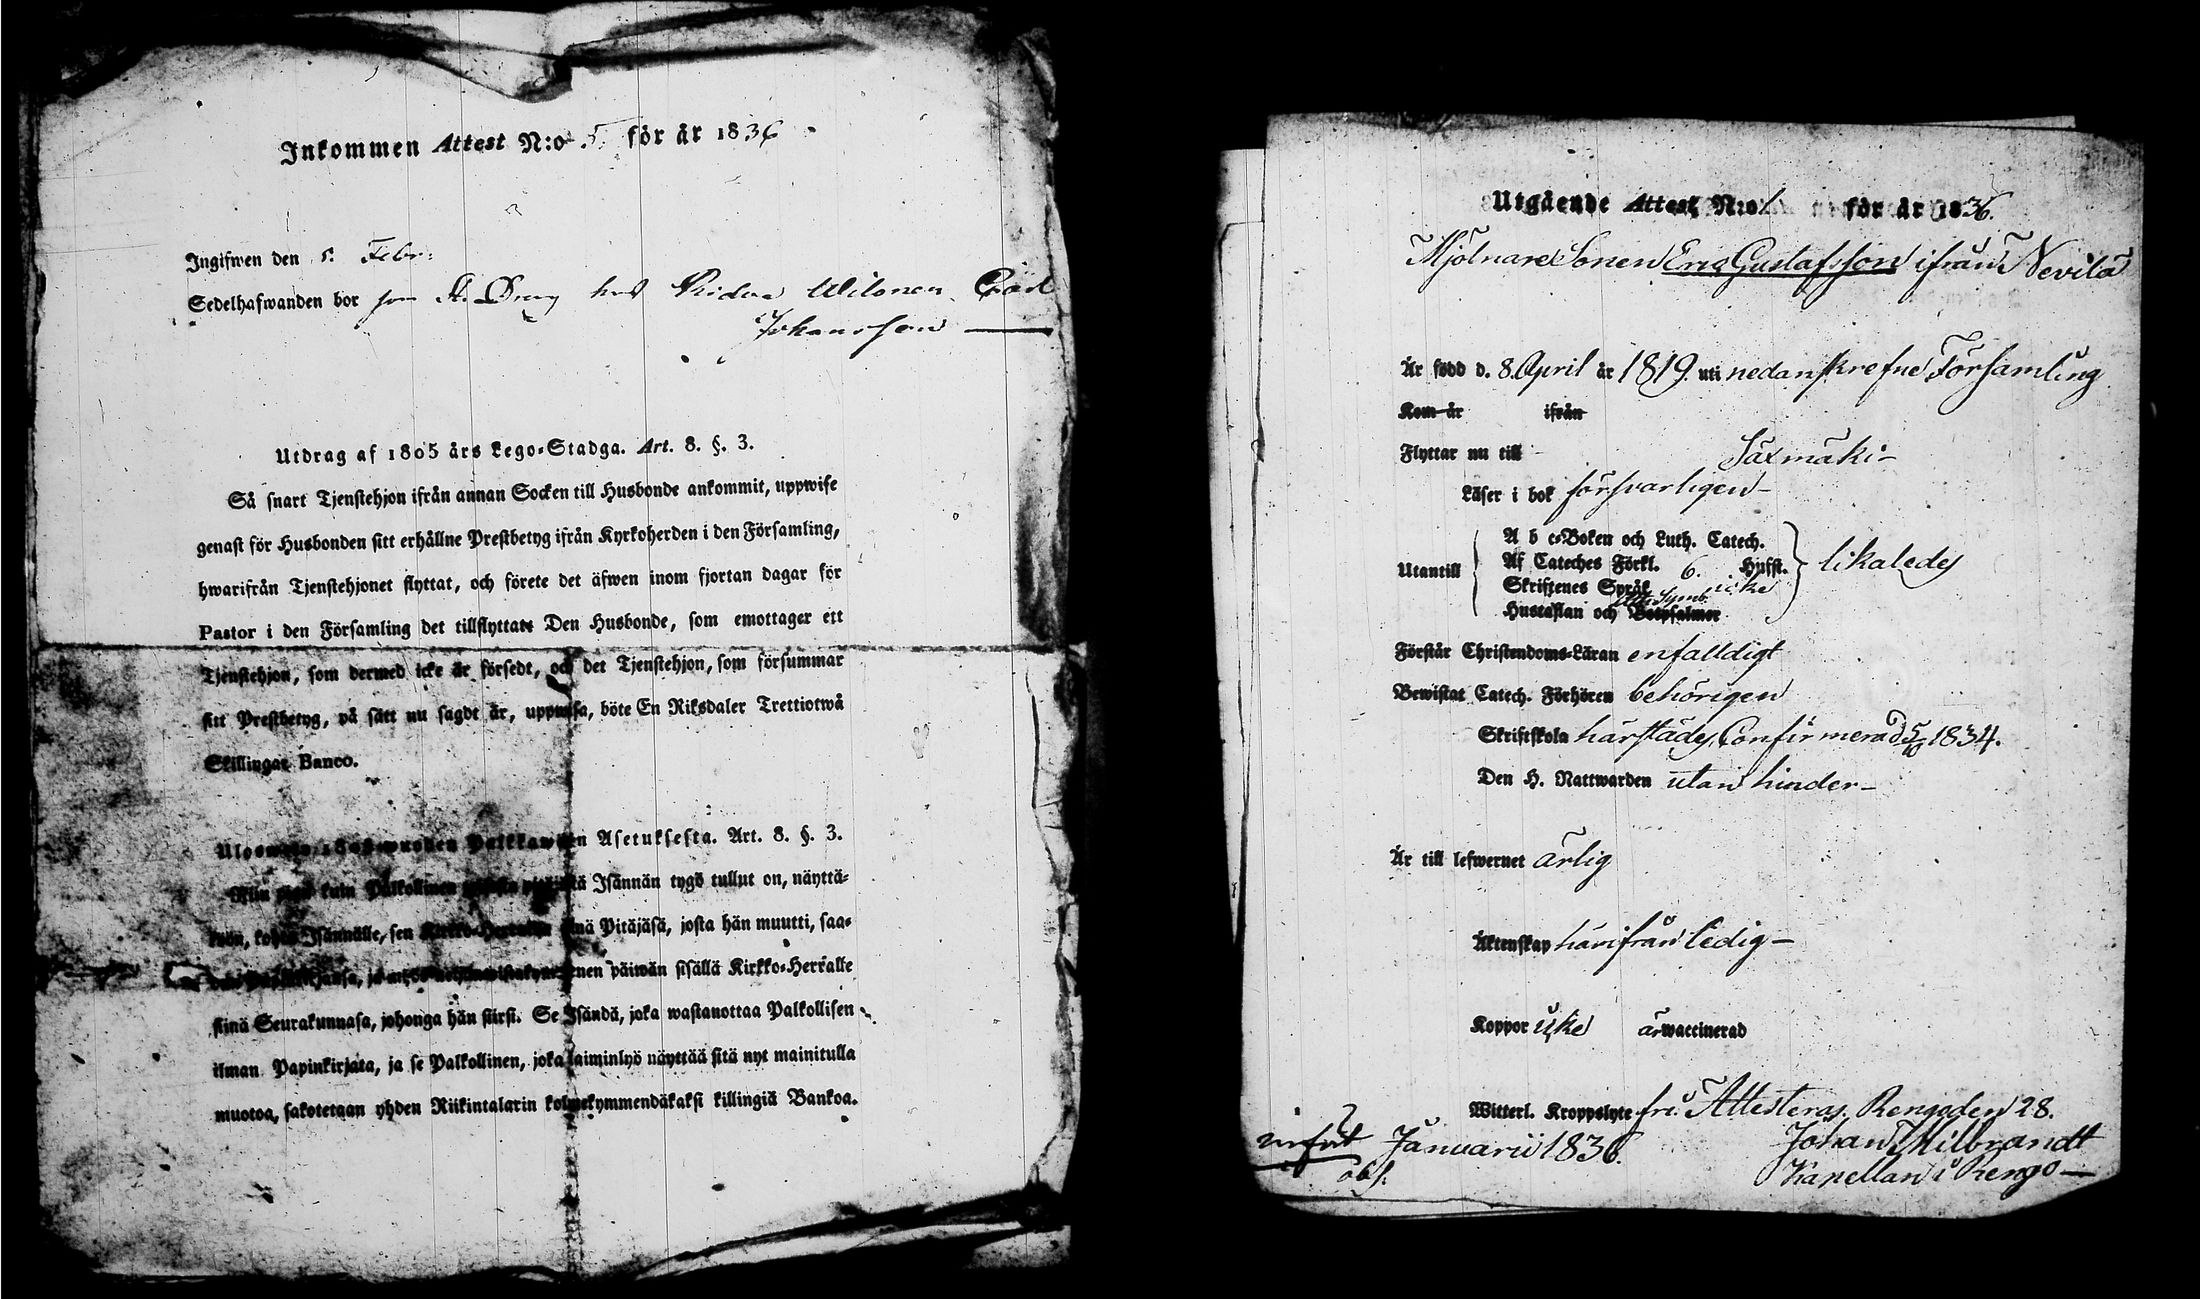 Inkommen Attest N:o 5 för år 1836
Ingifwen den 5. Febr:
Sedelhafwanden bor som St. Dreng hos
Johansson
Utdrag af 1805 års Lego-Stadga. Art. 8. §. 3.
Så snart Tjenstehjon ifrån annan Socken till Husbonde ankommit, uppwise
genast för Husbonden sitt erhållne Prestbetyg ifrån Kyrkoherden i den Församling,
hwarifrån Tjenstehjonet flyttat, och förete det äfwen inom fjortan dagar för
Pastor i den Församling det tillflyttat. Den Husbonde, som emottager ett
Tjenstehjon, som dermed icke är försedt, och det Tjenstehjon, som försummar
sitt Prestbetyg, på sätt nu sagdt är, uppwisa, böte En Riksdaler Trettiotwå
Skillingar Banco.
Ulosweto 1805 wuoden Palkkawäen Asetuksesta. Art. 8. §. 3.
kuin Palkollinen Isännän tygö tullut on, näyttä-
Isännälle, sen Kirkko-Herralta siinä Pitäjäsä, josta hän muutti, saa-
päiwän sisällä Kirkko-Herralle
siinä Seurakunnasa, johonga hän siirsi. Se Isändä, joka wastanottaa Palkollisen
ilman Papinkirjata, ja se Palkollinen, joka laiminlyö näyttää sitä nyt mainitulla
muotoa, sakotetaan yhden Riikintalarin kolmekymmendäkaksi killingiä Bankoa.
Utgående Attest N:o 1 för år 1836.
Mjölnare Sonen Eric Gustafsson ifrån Nevilä
Är född d. 8. April år 1819. uti nedanskrefne Församling
Kom år ifrån
Flyttar nu till Säxmäki
Läser i bok försvarligen
A b c-Boken och Luth. Catech.
Utantill Af Cateches Förkl. 6. Hufst. likaledes
Skriftenes Språk icke
Ath. Symb.
Hustaflan och Botpsalmer
Förstår Christendoms-Läran enfalldigt
Bewistat Catech. Förhören behörigen
Skriftskola härstädes, Confirmerad 5/10 1834.
Den H. Nattwarden utan hinder
Är till lefwernet ärlig
Äktenskap härifrån ledig
Koppor icke är waccinerad
Witterl. Kroppslyte fri. Attesteras. Rengo den 28.
Januarii 1836. Johan Milbrandt
Kapellan i Rengo
infört